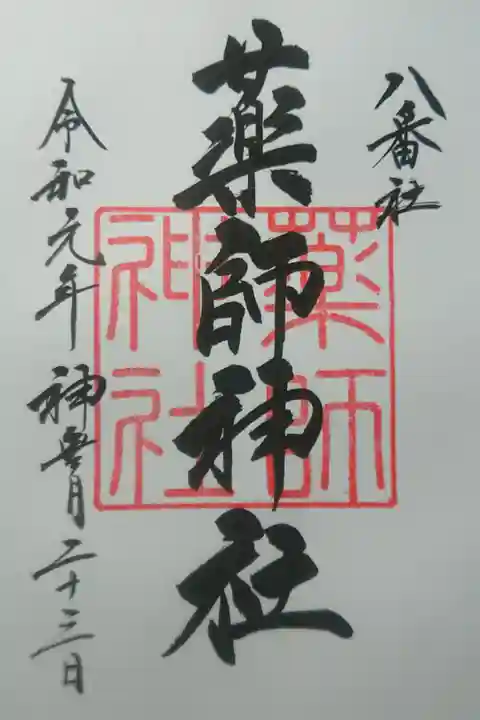 八番社
薬師神社
薬師
神社
令和元年 神無月 二十三日